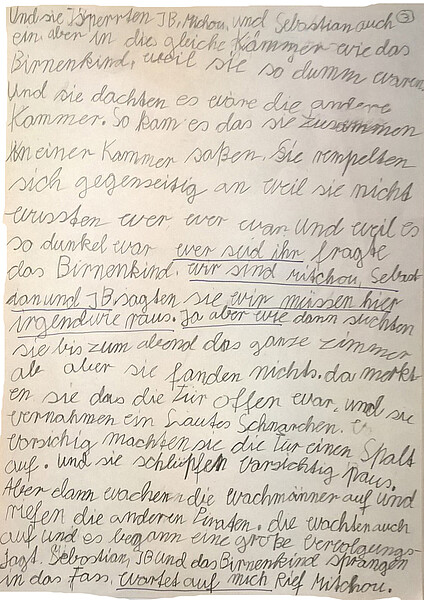 Und sie sperrten JB, Mitchou, und Sebastian auch 3
ein, aber in die gleiche Kammer wie das
Birnenkind, weil sie so dumm waren
Und sie dachten es wäre die andere
Kammer. So kam es das sie zusammen
in einer Kammer saßen. Sie rempelten
sich gegenseitig an weil sie nicht
wussten wer wer war und weil es
so dunkel war wer seid ihr fragte
das Birnenkind. wir sind mitchou, Sebast
ian und JB, sagten sie wir müssen hier
irgendwie raus. Ja aber wie dann suchten
sie bis zum abend das ganze zimmer
ab aber sie fanden nichts. da merkt
en sie das die tür offen war, und sie
vernahmen ein Lautes Schnarchen.
vorsichig machten sie die tür einen Spalt
auf. und sie schlüpfen vorsichtig raus.
Aber dann wachen die wachmänner auf und
riefen die anderen Piraten. die wachten auch
auf und es begann eine große Vervolgungs-
Jagt. Sebastian, JB und das Birnenkind sprangen
in das Fass, wartet auf mich Rief Mitchou.